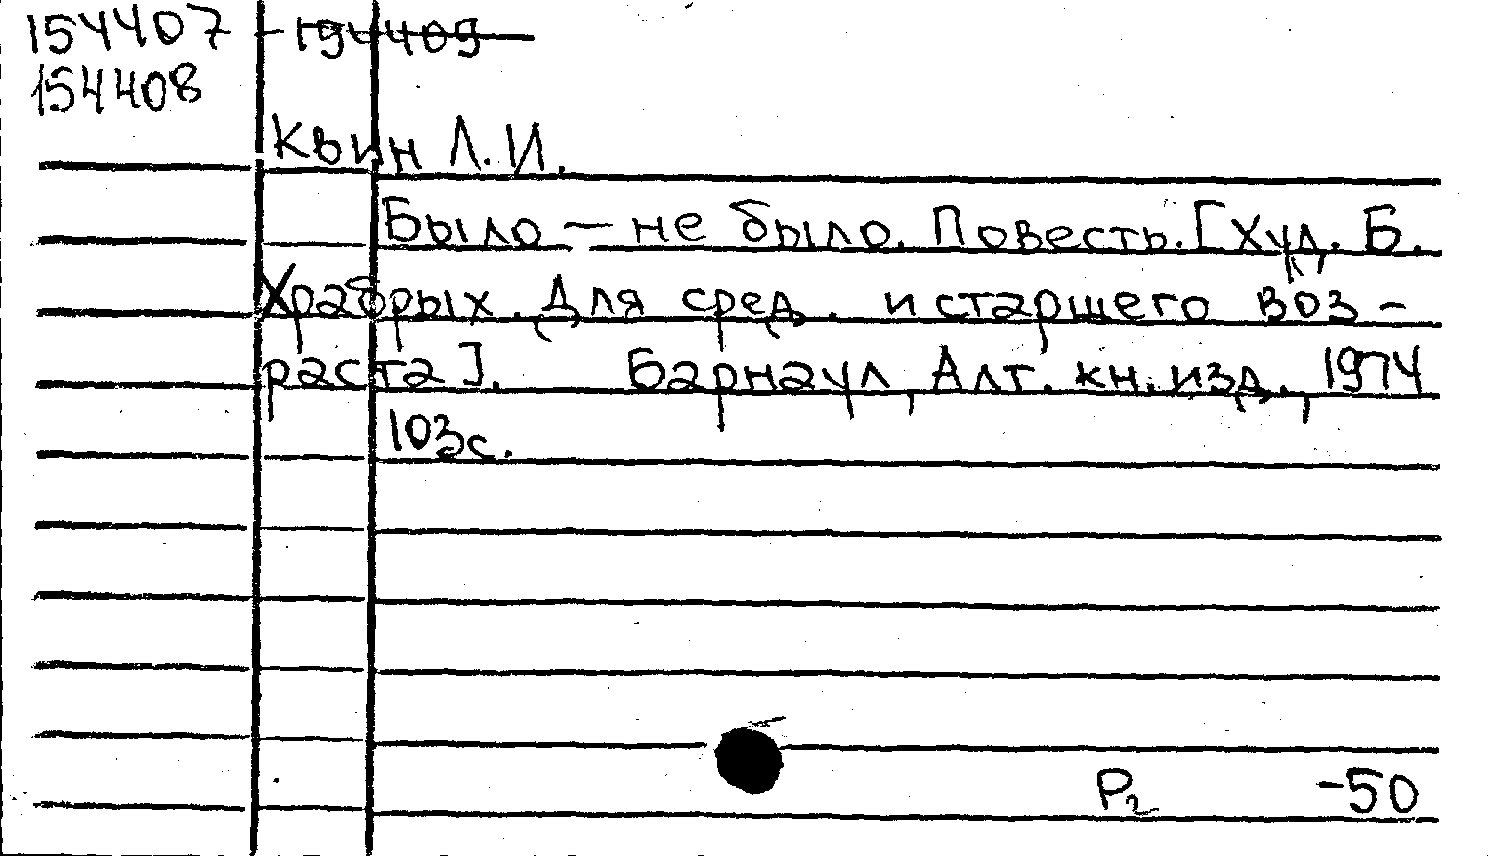 154407 - 194409
154408
Квин Л. И.
Было — не было. Повесть. [Худ. Б.
Храбрых. Для сред. и старшего воз-
раста]. Барнаул, Алт. кн. изд., 1974
103с.
Р2 -50